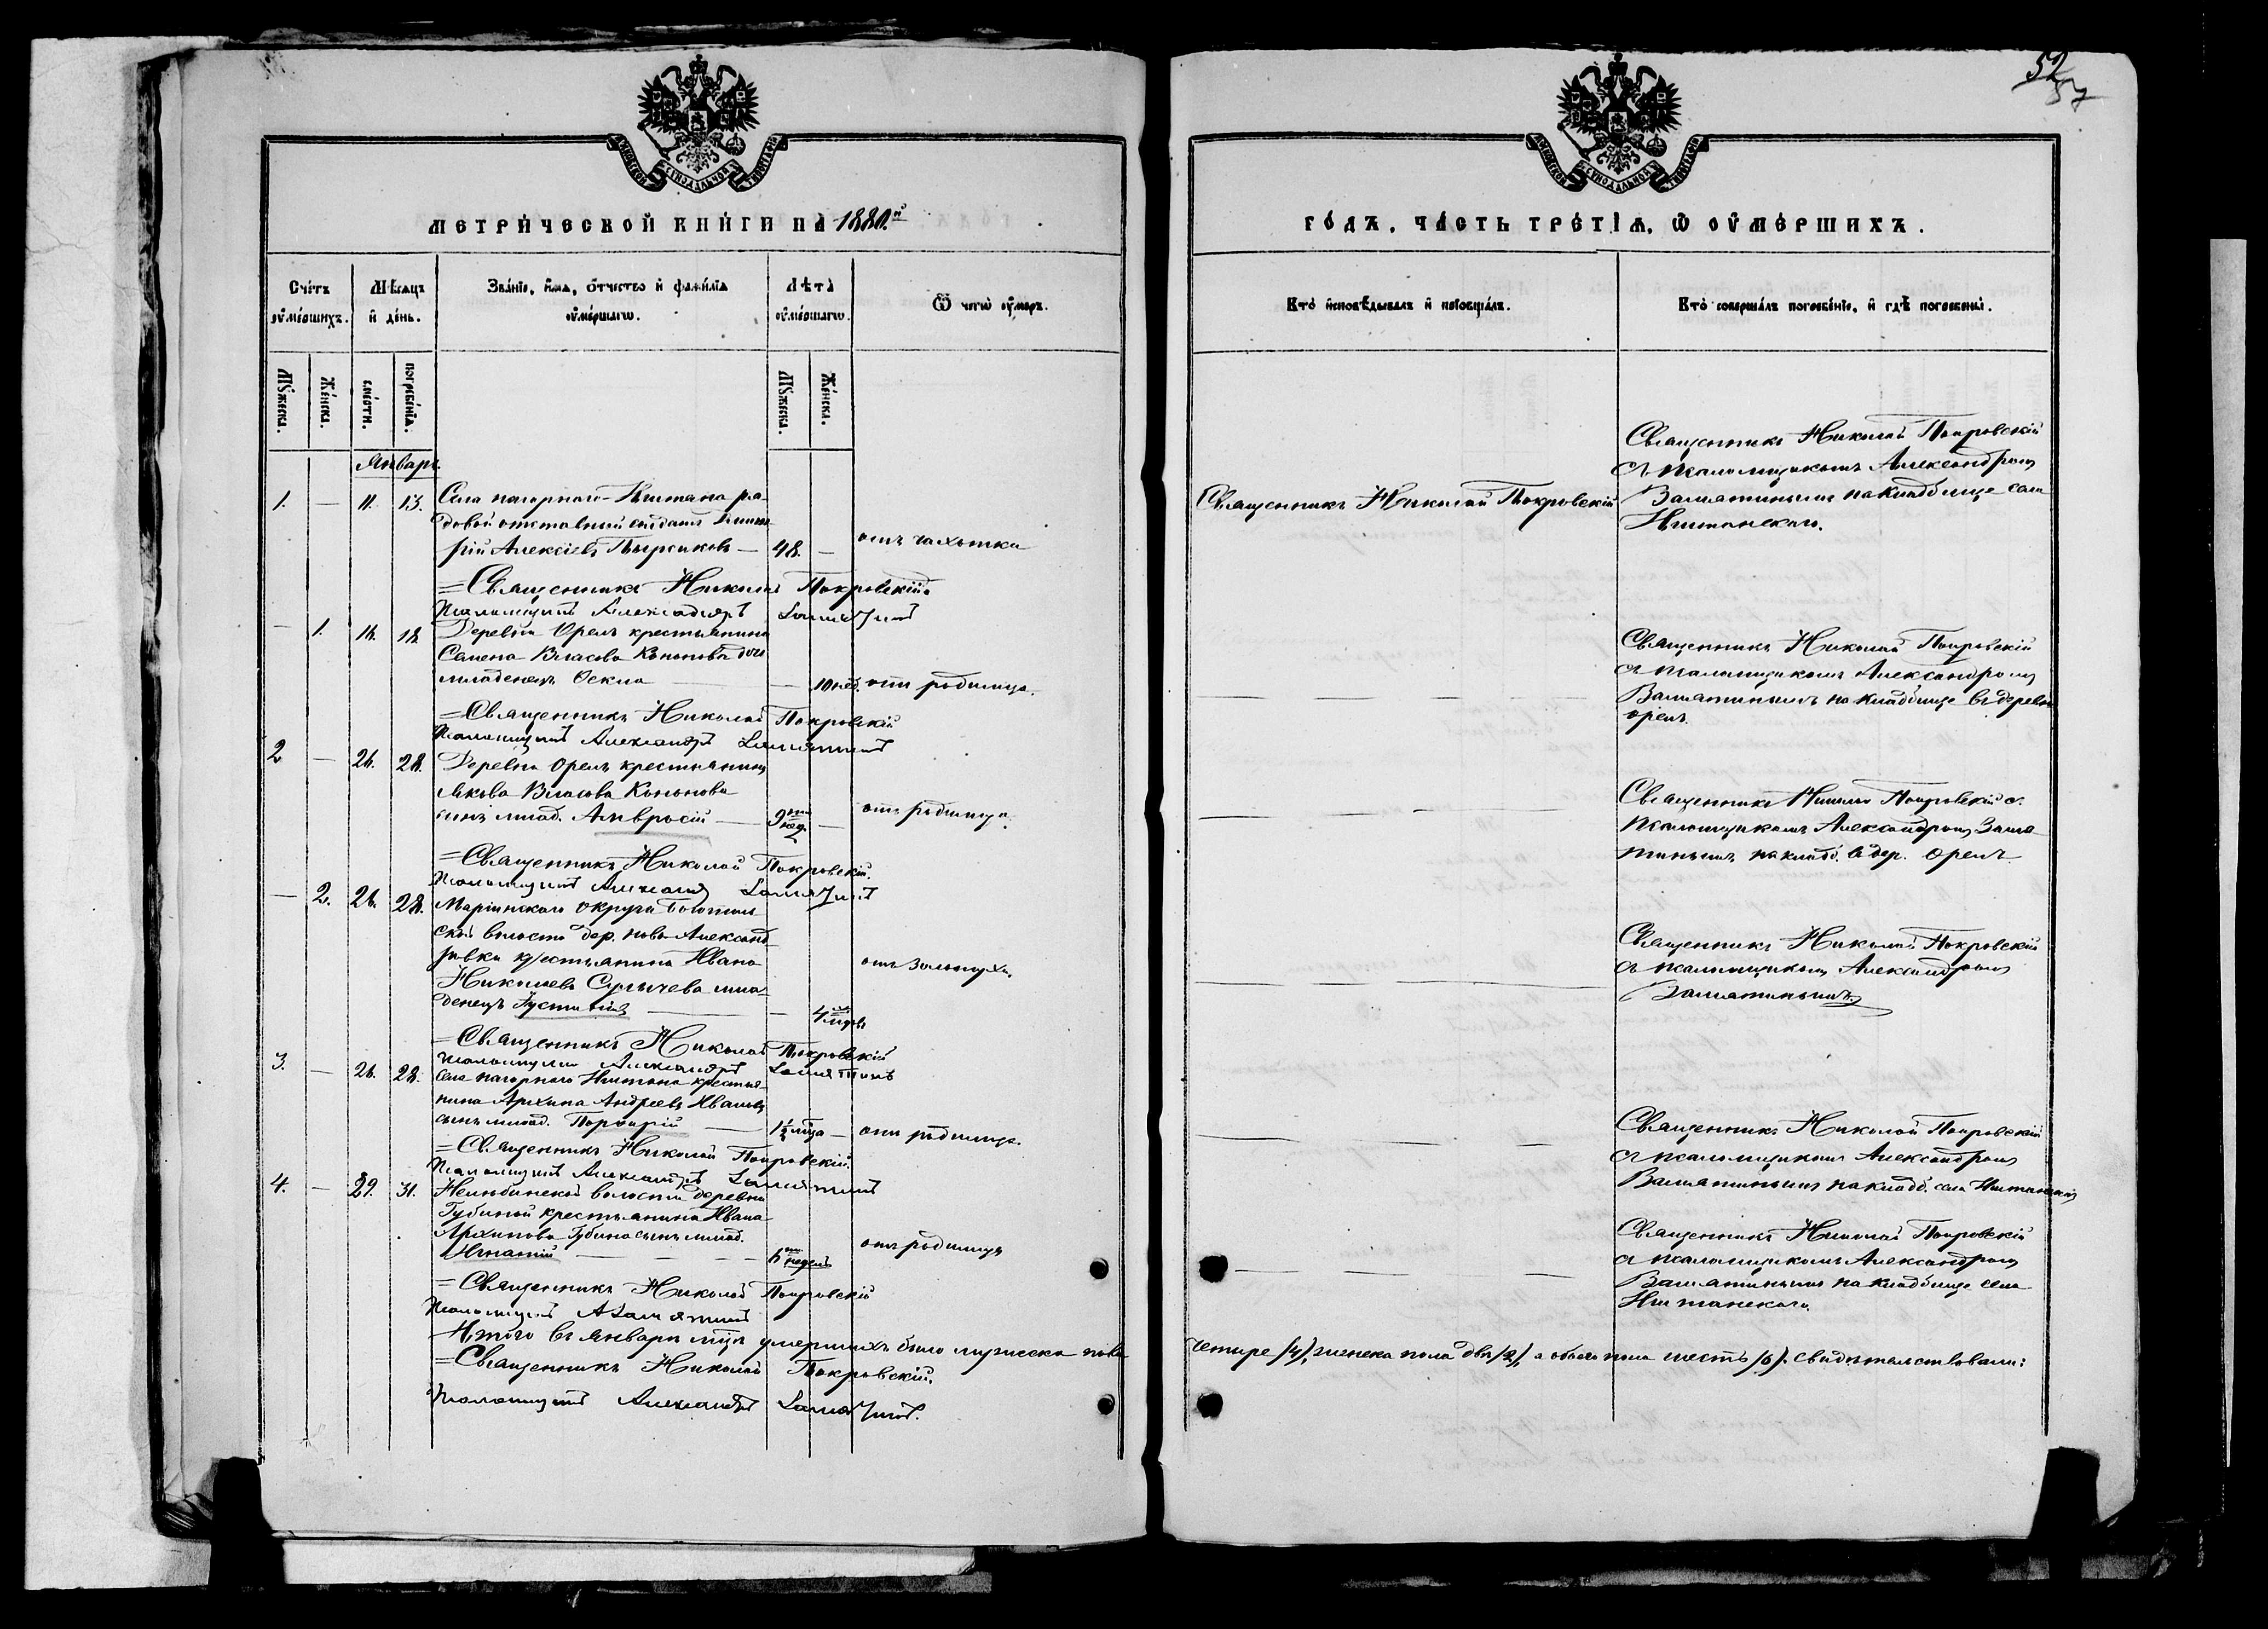 52
57
МЕТРИЧЕСКОЙ КНИГИ НА 1880.й
ГОДЪ, ЧАСТЬ ТРЕТІЯ, Ѡ ОУМЕРШИХЪ.
Счетъ оумершихъ.
Мѣсяцъ и день.
Званіе, имя, отчество и фамилія оумершагѡ.
Лѣта оумершагѡ.
Ѿ чегѡ оумеръ.
Кто исповѣдывалъ и пріобщалъ.
Кто совершалъ погребеніе, и гдѣ погребены.
Мужеска.
Женска.
смерти.
погребенія.
Мужеска.
Женска.
Январь.
1. — 11. 13. Села нагорнаго Иштана ря-
довой отставный солдатъ Дмит-
рій Алексіевъ Пыжиковъ — 48. — отъ чахотки
Священникъ Николай Покровскій
Священникъ Николай Покровскій
съ псаломщикомъ Александромъ
Замятинымъ на кладбище села
Иштанскаго.
= Священникъ Николай Покровскій.
Псаломщикъ Александръ Замятинъ
— 1. 16. 18. Деревни Орелъ крестьянина
Семена Власова Кононова дочь
младенецъ Оекла — — 10 нед. отъ родимца.
Священникъ Николай Покровскій
съ псаломщикомъ Александромъ
Замятинымъ на кладбище въ деревни
орелъ.
= Священникъ Николай Покровскій
Псаломщикъ Александръ Замятинъ
2 — 26. 28. Деревни Орелъ крестьянина
Якова Власова Кононова
сынъ млад. Амвросій — 9ти нед. — отъ родимца.
Священникъ Николай Покровскій съ
псаломщикомъ Александромъ Замя-
тинымъ на кладб. въ дер. Орелъ
= Священникъ Николай Покровскій.
Псаломщикъ Александръ Замятинъ
— 2. 26. 28. Маріинскаго округа
ской волости дер. ново-Александ-
ровки крестьянина Ивана
Николаева мла-
денецъ — — 4
Священникъ Николай Покровскій
съ псаломщикомъ Александромъ
Замятинымъ.
= Священникъ Николай Покровскій
Псаломщикъ Александръ Замятинъ
3. — 26. 28. Села нагорнаго Иштана крестья-
нина Архипа Андреева Иванова
сынъ млад. Порфирій — 1½ мца — отъ родимца.
Священникъ Николай Покровскій
съ псаломщикомъ Александромъ
Замятинымъ на кладб. села Иштанскаго
= Священникъ Николай Покровскій.
Псаломщикъ Александръ Замятинъ
4. — 29. 31. Нелюбинской волости деревни
Губиной крестьянина Ивана
Архипова Губина сынъ млад.
Игнатій — — 6ти недель отъ родимца
Священникъ Николай Покровскій
съ псаломщикомъ Александромъ
Замятинымъ на кладбище села
Иштанскаго.
= Священникъ Николай Покровскій
Псаломщикъ А Замятинъ
Итого въ январѣ мцѣ умершихъ было мужеска пола четыре /4/, женска пола двѣ /2/, а обоего пола шесть /6/. Свидѣтельствовали:
= Священникъ Николай Покровскій.
Псаломщикъ Александръ Замятинъ.